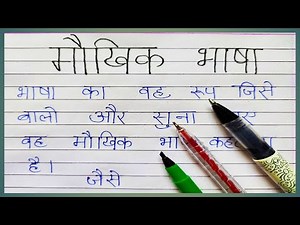 मौखिक भाषा
भाषा का वह रूप जिसे
बोलो और सुना
वह मौखिक
है।
जैसे